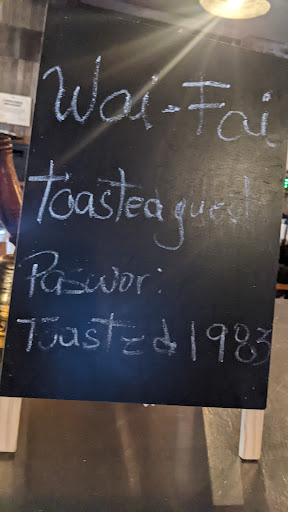 Wai-Fai
Toastedguest
Paswor:
Toasted1983